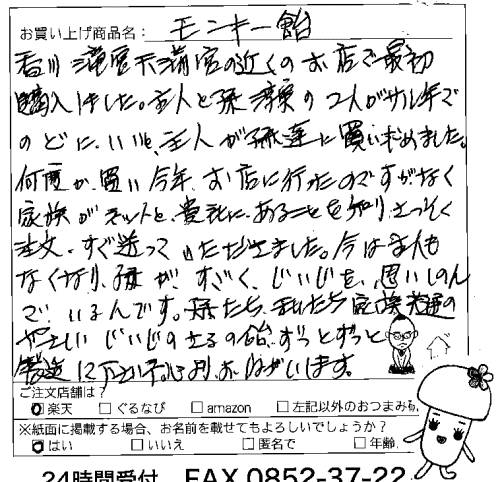 お買い上げ商品名: モンキー飴
香川 滝宮天満宮の近くのお店で最初
購入しました。主人と孫 の2人がサル年で
のどに、いいと、主人が孫達に買い求めました。
何度か、買い今年、お店に行ったのですがなく
家族がネットと、貴社に、あることを知り、さっそく
注文、すぐ送っていただきました。今は主人も
なくなり、孫が、すごく、じいじを、思いしのん
で、いるんです。孫たち、私たち家族共通の
やさしいじいじのさるの飴、ずっとずっと
製造して下さい。心より、おねがいします。
ご注文店舗は?
楽天 □ぐるなび □amazon □左記以外のおつまみ
※紙面に掲載する場合、お名前を載せてもよろしいでしょうか?
はい □いいえ □匿名で □年齢
24時間受付 FAX 0852-37-22